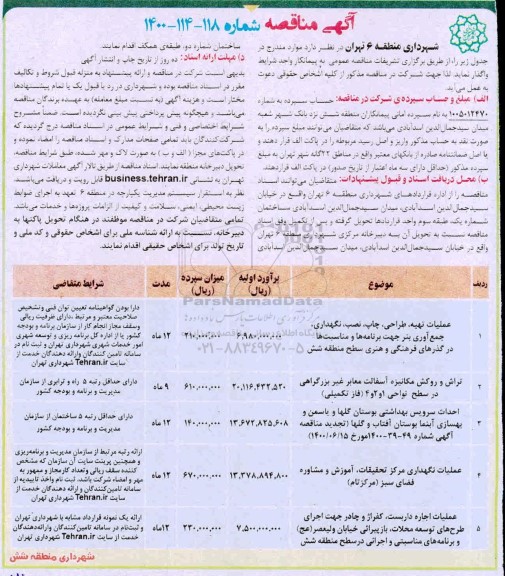 آگهی مناقصه شماره ۱۱۸-۱۱۴-۱۴۰۰
شهرداری منطقه ۶ تهران در نظر دارد موارد مندرج در
جدول زیر را، از طریق برگزاری تشریفات مناقصه عمومی به پیمانکار واجد شرایط
واگذار نماید. لذا جهت شرکت در مناقصه مذکور از کلیه اشخاص حقوقی دعوت
به عمل می‌آید.
الف) مبلغ و حساب سپرده‌ی شرکت در مناقصه: حساب سپرده به شماره
۱۰۰۵۰۱۲۴۷۰ به نام سپرده امانی پیمانکاران منطقه شش نزد بانک شهر شعبه
میدان سیدجمال‌الدین اسدآبادی می‌باشد که متقاضیان می‌توانند مبلغ سپرده را به
صورت نقد به حساب مذکور واریز و اصل رسید مربوطه را در پاکت الف قرار دهند و
یا اصل ضمانتنامه صادره از بانکهای معتبر واقع در مناطق ۲۲گانه شهر تهران به مبلغ
سپرده مذکور (حداقل دارای سه ماه اعتبار از تاریخ صدور) در پاکت الف قرار دهند.
ب) محل دریافت اسناد و قبول پیشنهادات: متقاضیان می‌توانند اسناد
مناقصه را از اداره قراردادهای شهرداری منطقه ۶ تهران واقع در خیابان
سیدجمال‌الدین اسدآبادی، میدان سیدجمال‌الدین اسدآبادی ساختمان
شماره یک، طبقه سوم واحد قراردادها تحویل گرفته و پس از تکمیل وفق اسناد
مناقصه نسبت به تحویل آن به دبیرخانه مرکزی شهرداری منطقه ۶ تهران
واقع در خیابان سیدجمال‌الدین اسدآبادی، میدان سیدجمال‌الدین اسدآبادی
ساختمان شماره دو، طبقه‌ی همکف اقدام نمایند.
د) مهلت ارائه اسناد: ده روز از تاریخ چاپ و انتشار آگهی
بدیهی است شرکت در مناقصه و ارائه پیشنهاد به منزله قبول شروط و تکالیف
مقرر در اسناد مناقصه بوده و شهرداری در رد یا قبول یک یا تمام پیشنهادها
مختار است و هزینه آگهی (به نسبت مبلغ معامله) به عهده برندگان مناقصه
می‌باشد و هیچگونه پیش پرداختی پیش بینی نگردیده است. ضمناً مشروح
شرایط اختصاصی و فنی و شرایط عمومی در اسناد مناقصه درج گردیده که
شرکت‌کنندگان باید تمامی صفحات مدارک و اسناد مناقصه را امضاء نموده و
در پاکت‌های مجزا (الف و ب) به صورت لاک و مهر شده، طبق شرایط مناقصه،
تحویل دبیرخانه منطقه نمایند. اسناد مناقصه از طریق تالار آگهی معاملات شهرداری
تهران به نشانی business.tehran.ir قابل رویت و دریافت می‌باشند.
نظر به استقرار سیستم مدیریت یکپارچه در منطقه ۶ تعهد به اجرای ضوابط
زیست محیطی، ایمنی، سلامت و کیفیت از الزامات پروژه‌ها و خدمات می‌باشد.
تمامی متقاضیان شرکت در مناقصه موظفند در هنگام تحویل پاکتها به
دبیرخانه، نسبت به ارائه شناسه ملی برای اشخاص حقوقی و کد ملی و
تاریخ تولد برای اشخاص حقیقی اقدام نمایند.
ردیف موضوع برآورد اولیه (ریال) میزان سپرده (ریال) مدت شرایط متقاضی
۱
عملیات تهیه، طراحی، چاپ، نصب، نگهداری،
جمع‌آوری بنر جهت برنامه‌ها و مناسبت‌ها
در گذرهای فرهنگی و هنری سطح منطقه شش
۱۲ ماه
دارا بودن گواهینامه تعیین توان فنی و تشخیص
صلاحیت معتبر و مرتبط ،دارای ظرفیت ریالی
وسقف مجاز انجام کار از سازمان برنامه و بودجه
کشور یا از اداره کل برنامه ریزی و توسعه شهری
امور خدمات شهری شهرداری تهران و ثبت نام در
سامانه تامین کنندگان وارائه دهندگان خدمت از
سایت Tehran.ir شهرداری تهران
۲
تراش و روکش مکانیزه آسفالت معابر غیر بزرگراهی
در سطح نواحی ۱و۲و۴ (فاز تکمیلی)
۲۰,۱۱۶,۴۳۲,۵۲۰ ۶۱۰,۰۰۰,۰۰۰ ۹ ماه
دارای حداقل رتبه ۵ راه و ترابری از سازمان
مدیریت و برنامه و بودجه کشور
۳
احداث سرویس بهداشتی بوستان گلها و یاسمن و
بهسازی آبنما بوستان آفتاب و گلها (تجدید مناقصه
آگهی شماره ۴۹-۳۹-۱۴۰۰مورخ ۱۴۰۰/۰۶/۱۵)
۱۳,۶۷۲,۸۲۵,۶۰۸ ۱۴۰,۰۰۰,۰۰۰ ۱۲ ماه
دارای حداقل رتبه ۵ ساختمان از سازمان
مدیریت و برنامه و بودجه کشور
۴
عملیات نگهداری مرکز تحقیقات، آموزش و مشاوره
فضای سبز (مرکزتام)
۱۳,۳۷۸,۸۹۴,۸۰۰ ۶۷۰,۰۰۰,۰۰۰ ۱۲ ماه
ارائه رتبه مرتبط از سازمان مدیریت و برنامه‌ریزی
و همچنین پرینت سایت آن سازمان که مشخص
کننده سقف ریالی وتعداد کارمجاز و ممهور به
مهر و امضاء شرکت باشد، ثبت نام واخذ تاییدیه از
سامانه تامین‌کنندگان و ارائه دهندگان خدمت از
سایت Tehran.ir شهرداری تهران
۵
عملیات اجاره داربست، کفراژ و چادر جهت اجرای
طرح‌های توسعه محلات، بازپیرائی خیابان ولیعصر(عج)
و برنامه‌های مناسبتی و اجرائی درسطح منطقه شش
۷,۵۰۰,۰۰۰,۰۰۰ ۲۳۰,۰۰۰,۰۰۰ ۱۲ماه
ارائه یک نمونه قرارداد مشابه با شهرداری تهران
و ثبت‌نام در سامانه تامین‌کنندگان وارائه‌دهندگان
خدمت از سایت Tehran.ir شهرداری تهران
ParsNamadData
۰۲۱-۸۸۳۴۹۶۷۰-۵
شهرداری منطقه شش